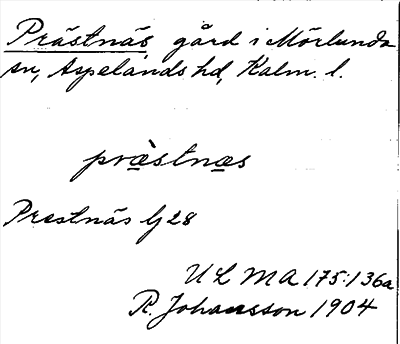 Prästnäs gård i Mörlunda
sn, Aspelands hd, Kalm. l.
præ̀stnæs
Prestnäs Lj 28
ULMA 175:136a
R. Johansson 1904